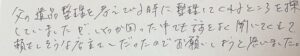 父の遺品整理を考えていた時に整理してくれるところを探
していましたが、いくつか困った中でも話をよく聞いてくれて
頼もしそうな方々でいらしたのでお願いしようと思いました。